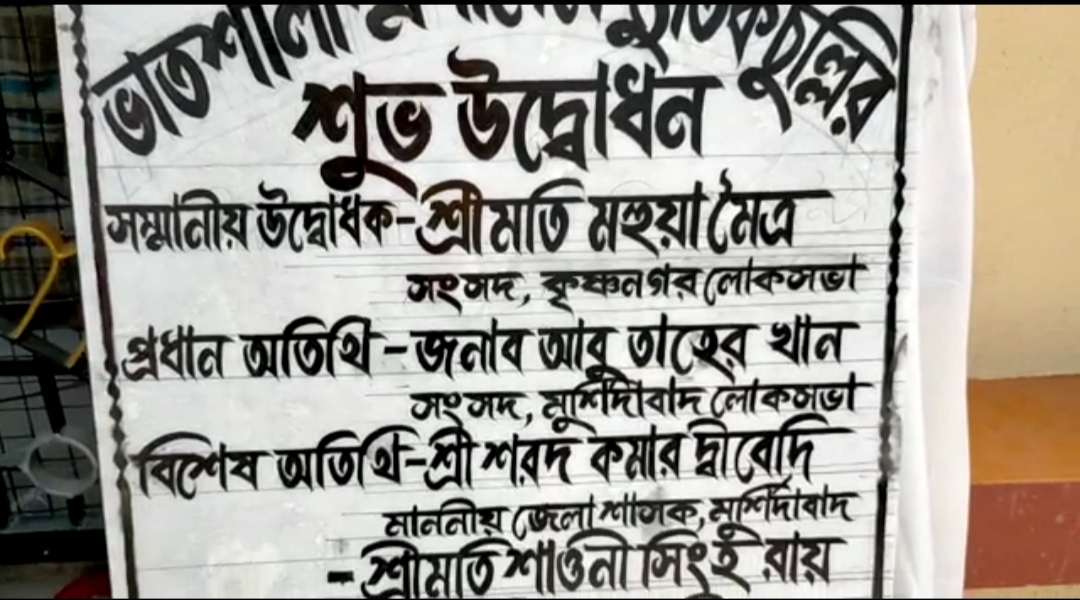 ভাতশালা চুল্লির
শুভ উদ্বোধন
সম্মানীয় উদ্বোধক-শ্রীমতি মহুয়া মৈত্র
সংসদ, কৃষ্ণনগর লোকসভা
প্রধান অতিথি - জনাব আবু তাহের খান
সংসদ, মুর্শিদাবাদ লোকসভা
বিশেষ অতিথি-শ্রী শরদ কুমার দ্বীবেদি
মাননীয় জেলা শাসক, মুর্শিদাবাদ
- শ্রীমতি শাওনী সিংহ রায়